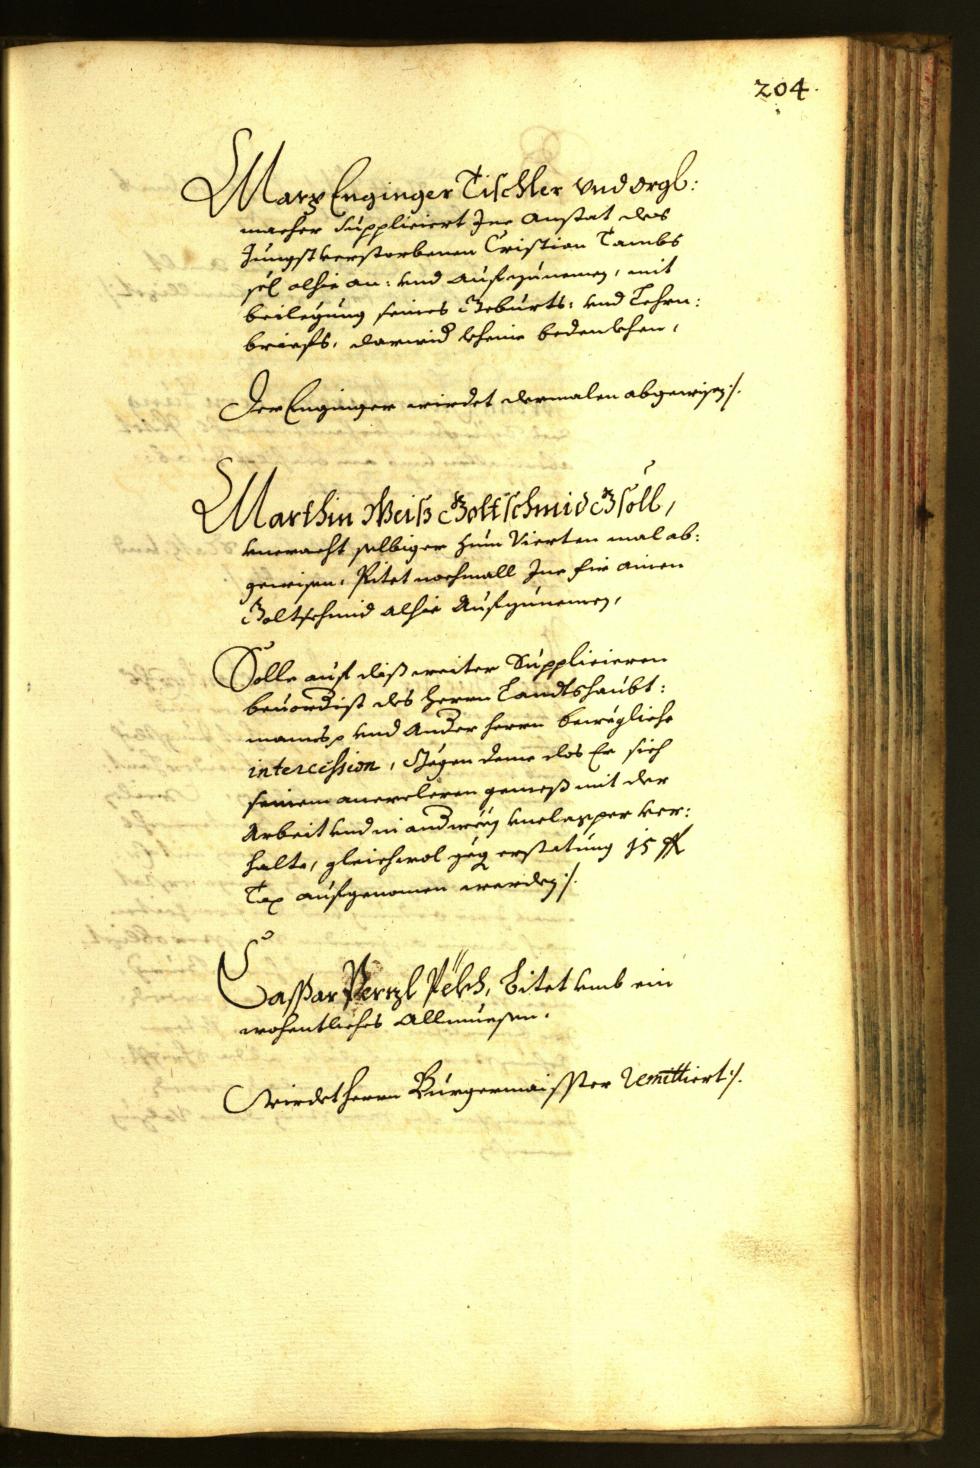 204.
Marx Enginger Tischler vnd orgl:
macher Suppliciert Ine Anstat des
Jungstverstorbenen Cristian Tambs
sel alhie an: vnd Aufzunemen, mit
beilegung seines Geburts: vnd Lehrn:
briefs, darwid kheine bedenkhen,
Der Enginger wirdet dermalen abgewisen ./.
Marthin Weiß Goltschmid Gsöll,
vneracht selbiger zum Vierten mal ab:
gewisen, Pitet nochmall Ine für ainen
Goltschmid alhie Aufzunemen,
Solle auf diß weiter Supplicieren
beuordist des Herrn Landtshaubt:
manns, vnd Ander Herrn bewegliche
intercession, Gegen deme das Er sich
seinem anerbieten gemeß mit der
Arbeit vnd in andweg vnclagper ver:
halte, gleichwol geg erstatung 15 f
Tax aufgenomen werden ./.
Casspar Pernzl Pekh, bitet vmb ein
wohentliches Allmuesen.
Wirdet Herrn Burgermaisster remittiert ./.